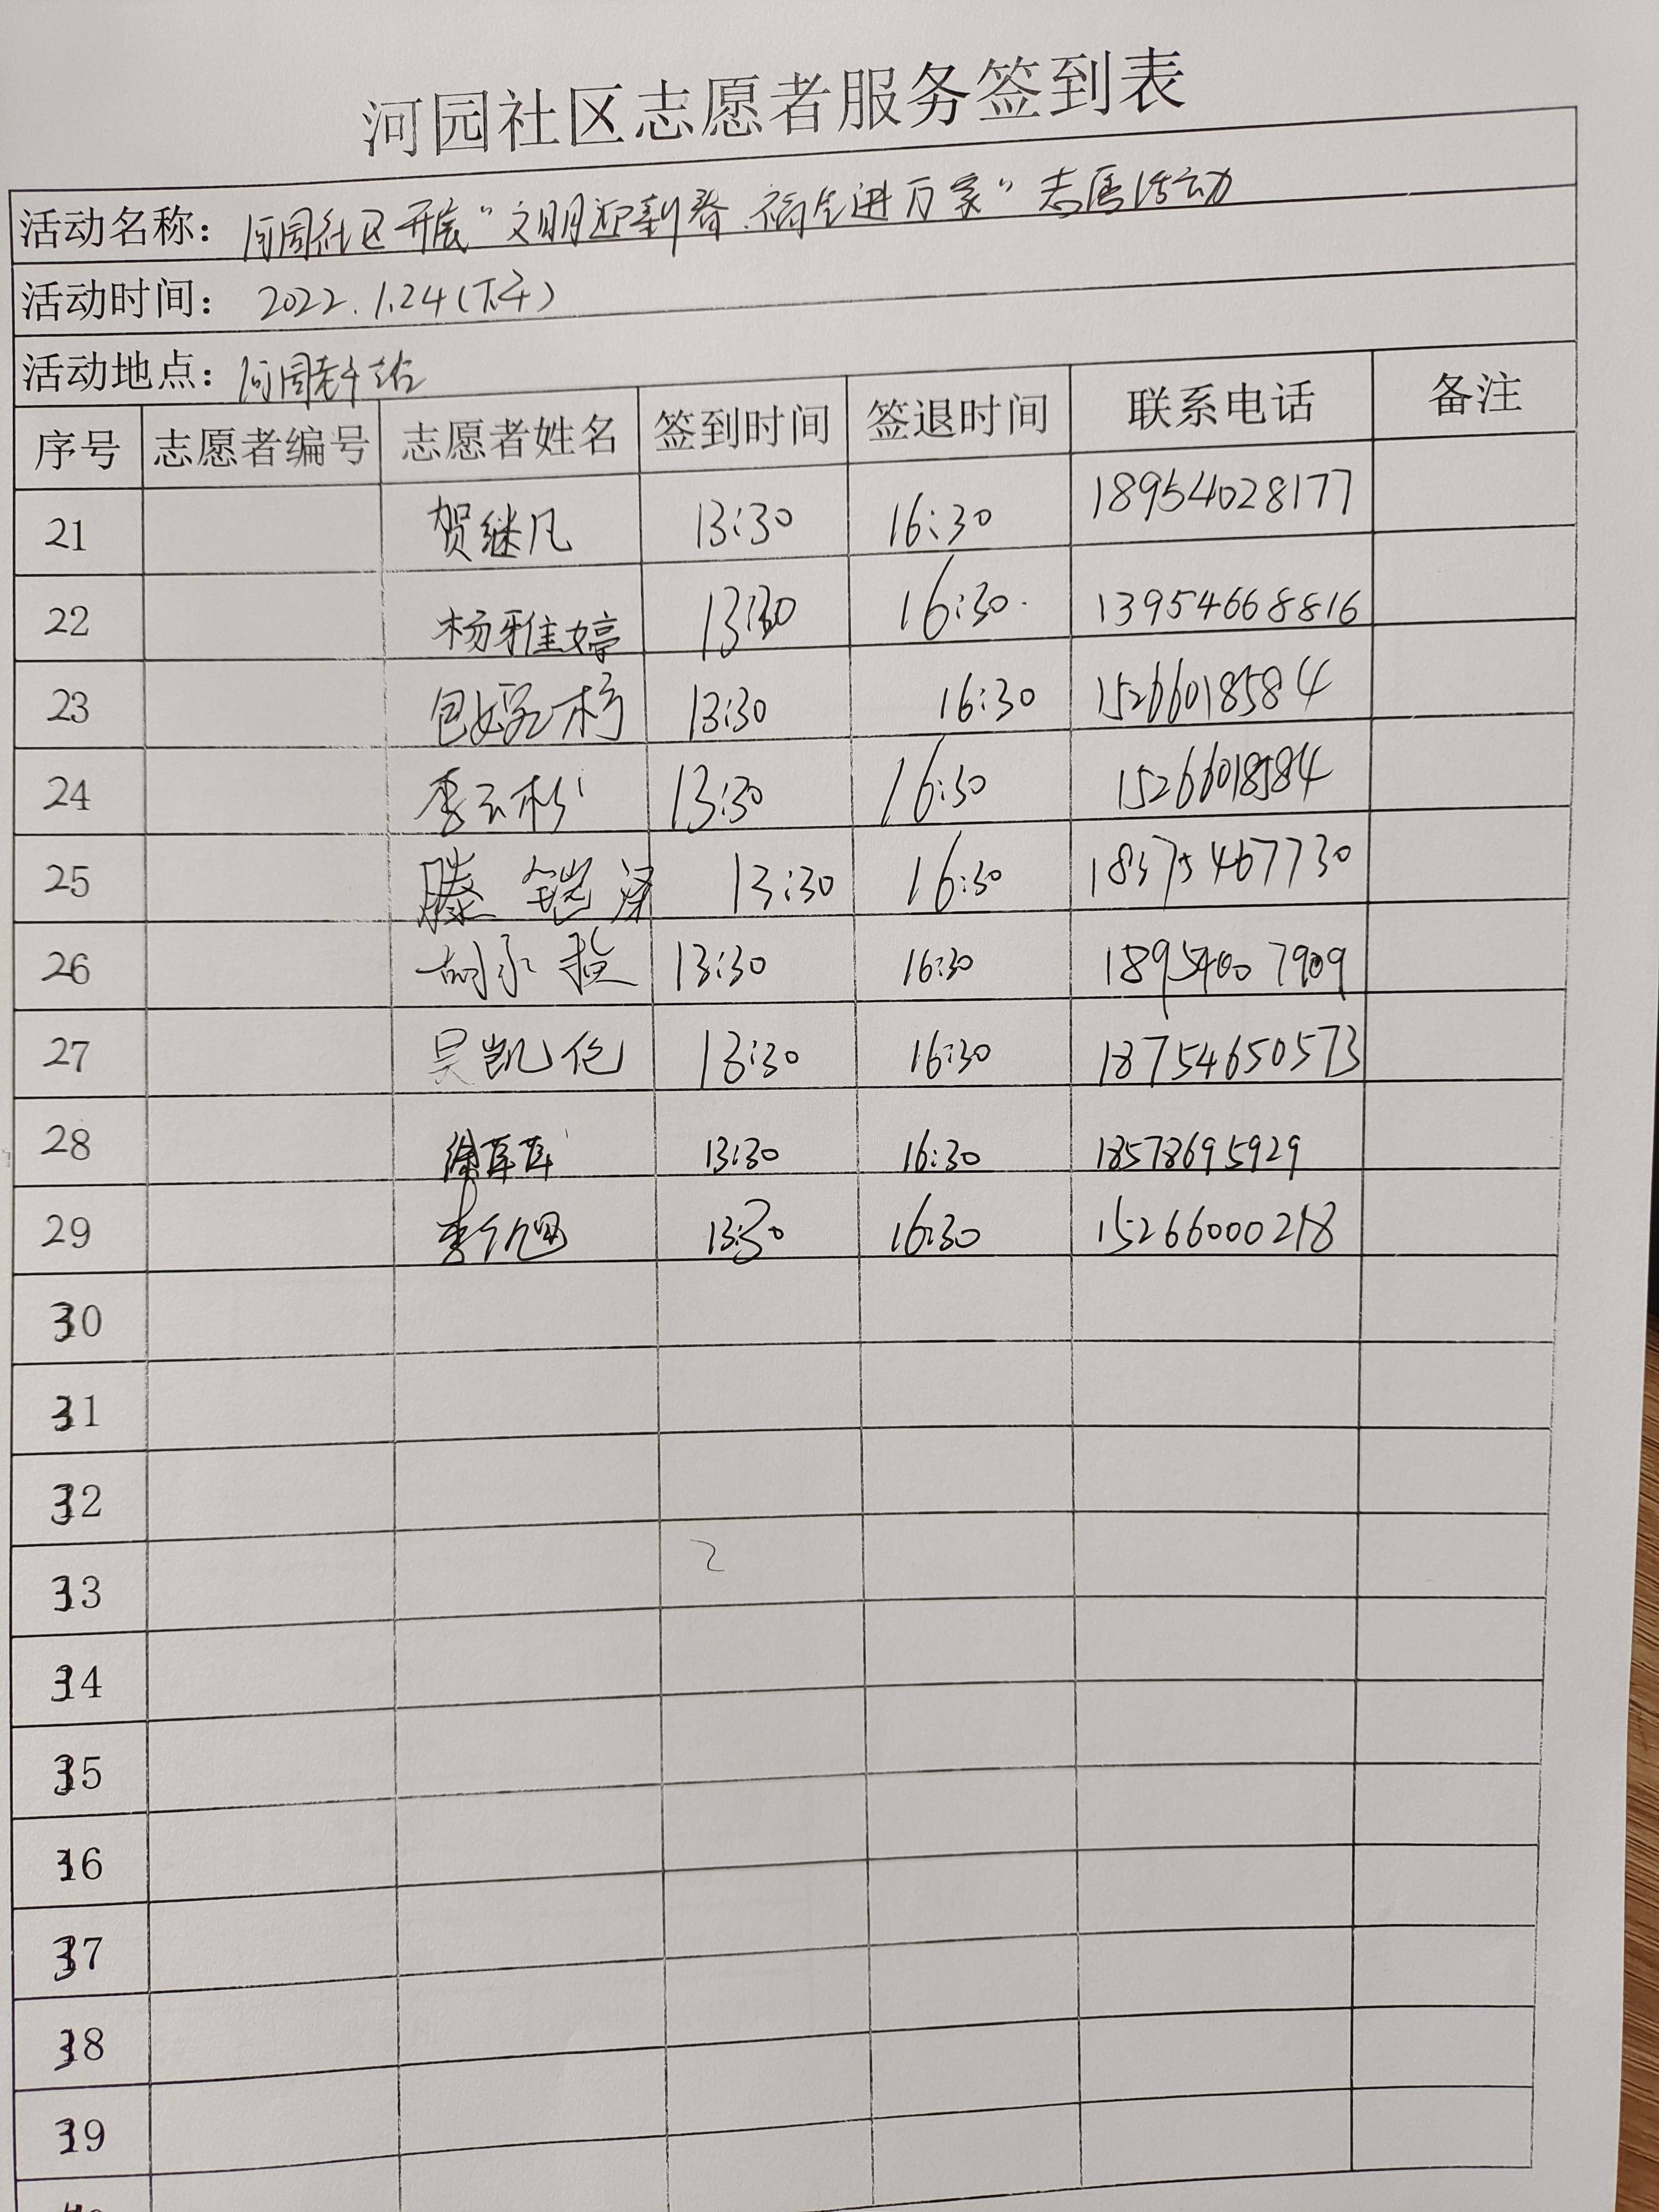 河园社区志愿者服务签到表
活动名称：河园社区开展"文明迎新春、福气进万家"志愿活动
活动时间：2022.1.24（下午）
活动地点：河园
序号 志愿者编号 志愿者姓名 签到时间 签退时间 联系电话 备注
21 贺继凡 13:30 16:30 18954028177
22 杨雅婷 13:30 16:30 13954668816
23 13:30 16:30 15266018584
24 13:30 16:30 15266018584
25 滕铠泽 13:30 16:30 18375467730
26 13:30 16:30
27 吴凯伦 13:30 16:30 18754650573
28 13:30 16:30 18578695929
29 13:30 16:30 15266000218
30
31
32
33
34
35
36
37
38
39